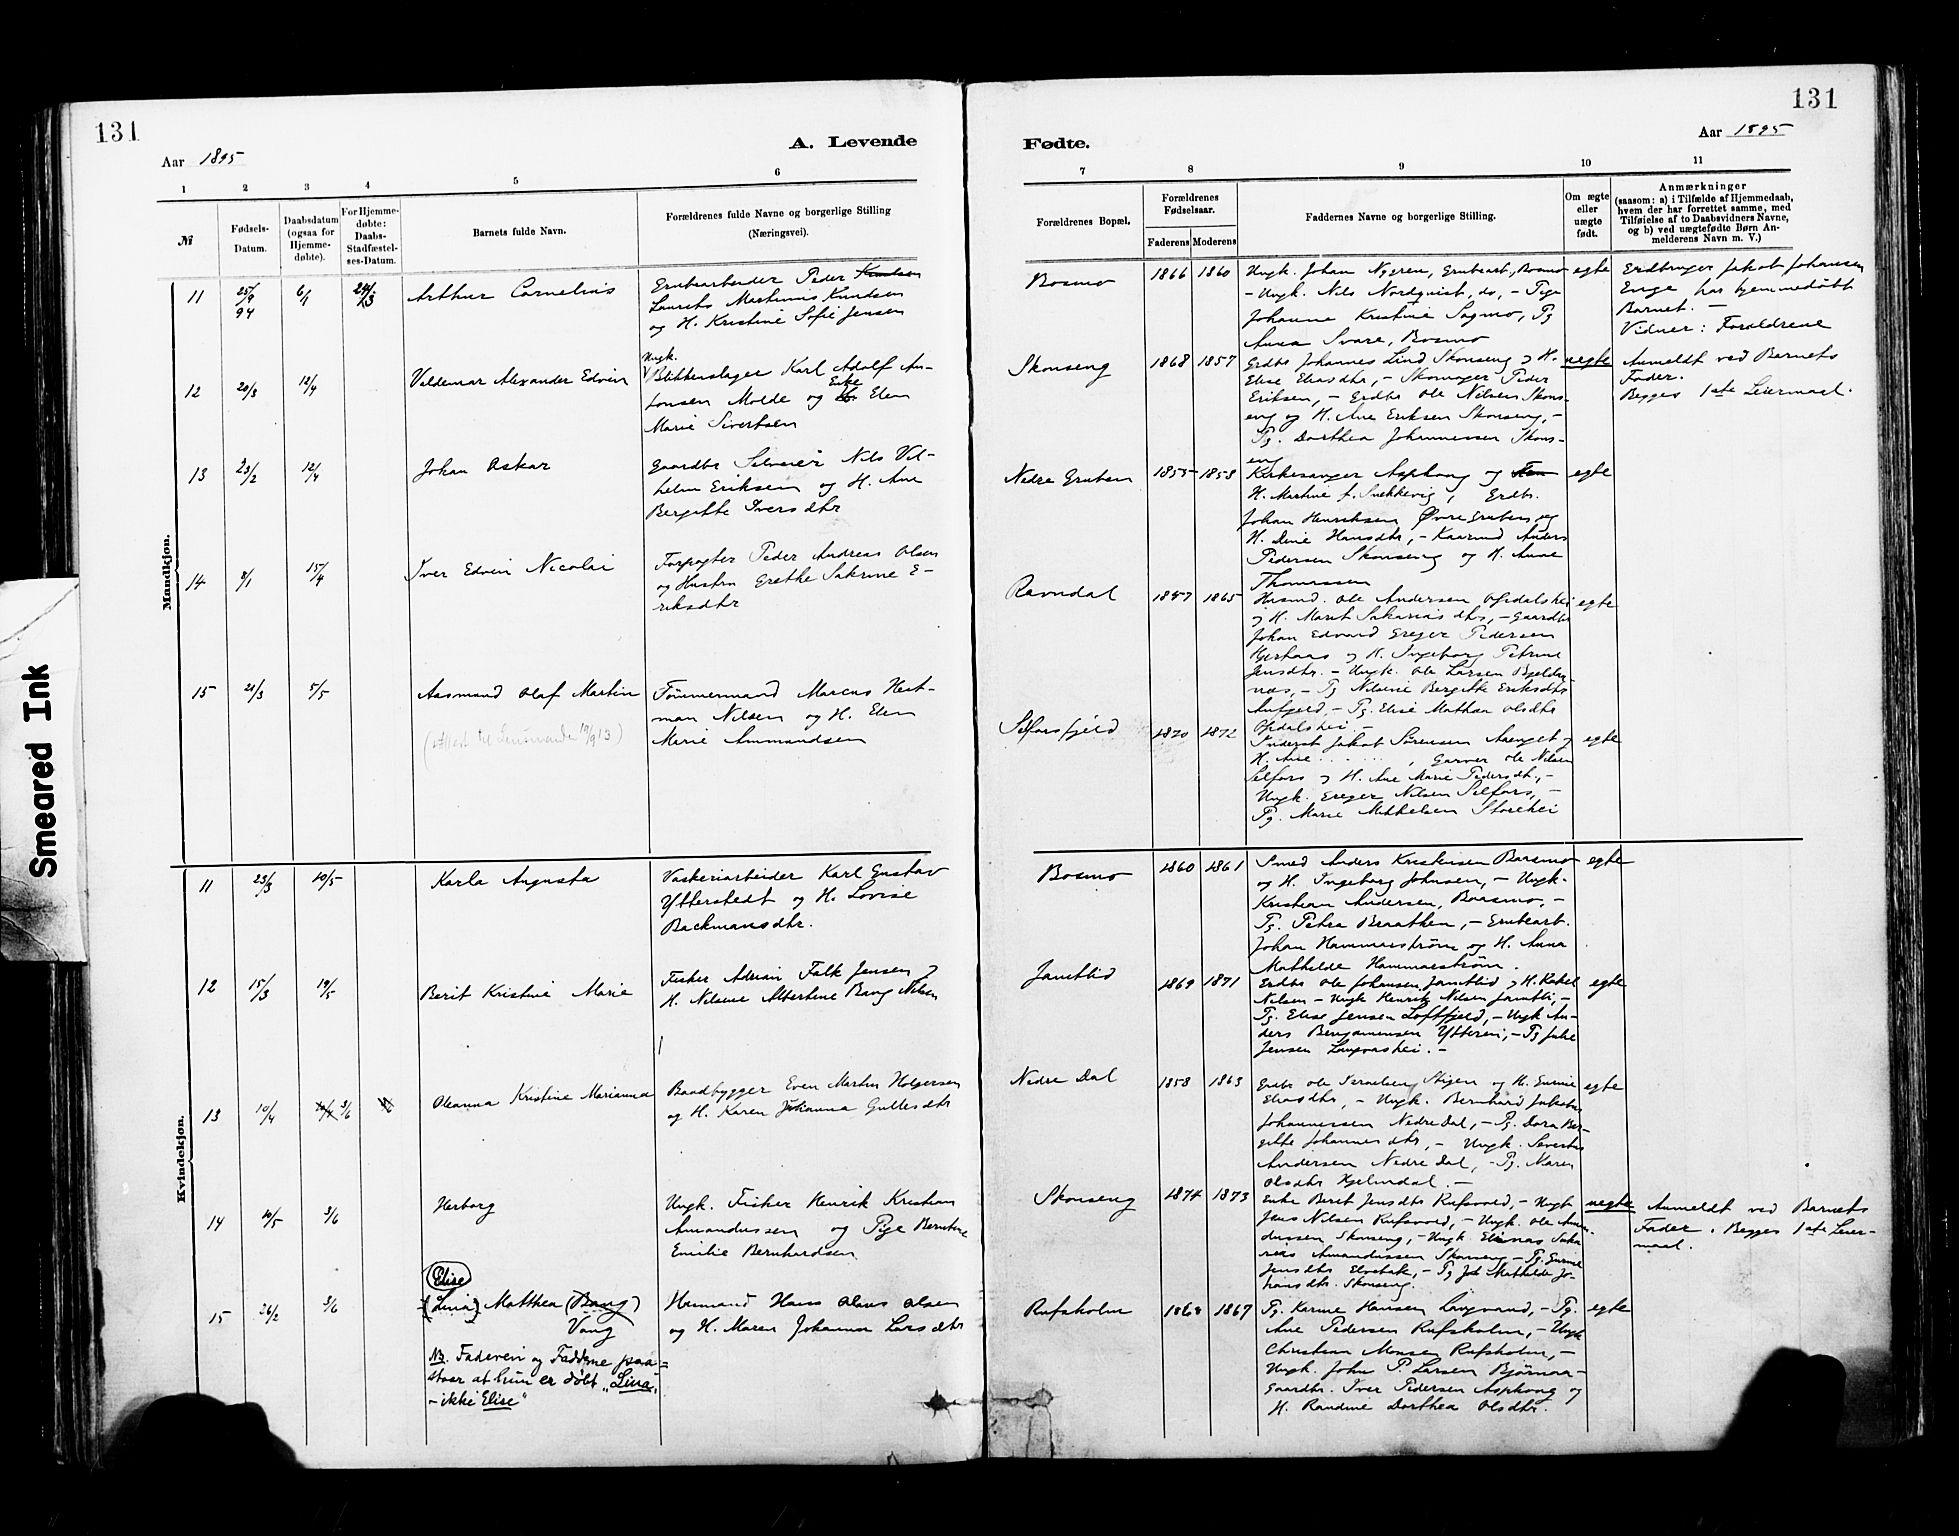 131
A. Levende
Aar 1895
1 2 3 4 5 6
№
Fødsels-
Datum.
Daabsdatum
(ogsaa for
Hjemme-
døbte).
For Hjemme-
døbte:
Daabs-
Stadfæstel-
ses-Datum.
Barnets fulde Navn.
Forældrenes fulde Navne og borgerlige Stilling
(Næringsvei).
Mandkjøn.
11 25/9 94 6/1
Arthur Cornelius
Grubearbeider Peder Knudsen
Laurits Martinus Knudsen
og H. Kristine Sofie Jensen
12 20/3 12/4
Valdemar Alexander Edvin
Ungk.
Blikkenslager Karl Adolf An-
tonsen Molde og Enke Elen
Marie Sivertsen
13 23/2 12/4
Johan Oskar
Gaardbr Selveier Nils Vil-
helm Eriksen og H. Ane
Bergitte Iversdtr
14 8/1 15/4
Iver Edvin Nicolai
Forpagter Peder Andreas Olsen
og Hustru Grethe Sakrine E-
riksdtr
15 21/3 5/5
Aasmund Olaf Martin
Tømmermand Marcus Hart-
man Nilsen og H. Elen
Marie Ammundsen
Kvindekjøn.
11 23/3 10/5
Karla Augusta
Vaskeriarbeider Karl Gustav
Ytterstedt og H. Lovise
Backmansdtr.
12 15/3 19/5
Berit Kristine Marie
Fisker Adrian Falk Jensen og
H. Nilsine Albertine Bang Nilsen
13 10/4 3/6
Oleanna Kristine Marianna
Baadbygger Even Martin Holgersen
og H. Karen Johanna Gullesdtr
14 10/5 3/6
Herborg
Ungk. Fisker Henrik Kristian
Amandussen og Pige Berntine
Emilie Bernhardsen
15 26/2 3/6
Elise
(Lina) Matthea (Bang)
Vang
Husmand Hans Olaus Olsen
og H. Maren Johanna Larsdtr
NB. Faderen og Fadderne paa=
staar at hun er døbt "Lina",
- ikke Elise"
131
Fødte.
Aar 1895
7 8 9 10 11
Forældrenes Bopæl.
Forældrenes
Fødselsaar.
Faderens Moderens
Faddernes Navne og borgerlige Stilling.
Om ægte
eller
uægte
født.
Anmærkninger
(saasom: a) i Tilfælde af Hjemmedaab,
hvem der har forrettet samme, med
Tilføielse af to Daabsvidners Navne,
og b) ved uægtefødte Børn An-
melderens Navn m. V.)
Bosmo 1866 1860
Ungk. Johan Nygren, Grubearb., Bosmo
- Ungk. Nils Nordquist, do, - Pige
Johanne Kristine Sagmo, Pg
Anna Svare, Bosmo
egte
Erdbruger Jakob Johansen
Enge har hjemmedøbt
Barnet. -
Vidner: Forældrene
Skonseng 1868 1857
Grdbr Johannes Lind Skonseng og H.
Elise Eliasdtr, - Skomager Peder
Eriksen, - Grdbr Ole Nilsen Skons-
eng og H. Ane Eriksen Skonseng, -
Pg. Dorthea Johannessen Skons-
eng
uegte
Anmeldt ved Barnets
Fader.
Begges 1ste Leiermaal.
Nedre Gruben 1855 1858
Kirkesanger Asphaug og
H. Martine f. Snekkevig, Grdbr.
Johan Henriksen Øvre Gruben og
H. Dine Hansdtr, - Kaarmd Anders
Pedersen Skonseng og H. Anne
Thomassen
egte
Ravndal 1857 1865
Husmd. Ole Andersen Opdalshei
og H. Marit Sakariasdtr, - Gaardbr
Johan Edvard Greger Pedersen
Hjerhaas og H. Ingeborg Petrine
Jensdtr. - Ungk. Ole Larsen Bjeldor-
næs, - Pg Nilsine Bergitte Eriksdtr
Aufjeld, - Pg. Elise Mathea Olsdtr
Opdalshei. -
egte
Selforsfjeld 1870 1872
Inderst Jakob Sørensen Aenget og
H. Ane . . . . . . , Garver Ole Nilsen
Selfors og H. Ane Marie Pedersdt., -
Ungk. Greger Nilsen Selfors, -
Pg. Marie Mikkelsen Storehei
egte
Bosmo 1860 1861
Smed Anders Kristensen Baasmo
og H. Ingeborg Johnsen, - Ungk.
Kristian Andersen, Baasmo, -
Pg. Petra Braathen, - Grubearb.
Johan Hammarstrøm og H. Anna
Mathilde Hammarstrøm.
egte
Jamtlid 1869 1871
Grdbr Ole Johansen Jamtlid og H. Rakel
Nilsen - Ungk Henrik Nilsen Jamtli, -
Pg. Elise Jensen Loftfjeld, - Ungk An-
ders Benjaminsen Ytteren, - Pg Julie
Jensen Langvashei. -
egte
Nedre Dal 1858 1863
Grdbr Ole Israelsen Stigen og H. Gurine
Eliasdtr, - Ungk. Bernhard Jakobus
Johannessen Nedre Dal, - Pg. Dora Ber-
gitte Johannesdtr, - Ungk. Severin
Andersen Nedre Dal, - Pg. Maren
Olsdtr Hjelmdal. -
egte
Skonseng 1874 1873
Enke Berit Jensdtr Rufsvold, - Ungk
Jens Nilsen Rufsvold, - Ungk. Ole Aman-
dussen Skonseng, - Ungk. Elinas Saka-
rias Amandussen Skonseng - Pg. Gurine
Jensdtr - Pg Mathilde Jo-
hansdtr. Skonseng.
uegte
Anmeldt ved Barnets
Fader. Begges 1ste Leier-
maal.
Rufsholm 1868 1867
Pg. Karine Hansen Langvand, - Pg.
Ane Pedersen Rufsholm, - Ungk
Christian Monsen Rufsholm, -
Ungk. John P. Larsen Bjørnaa-
Gaardbr. Iver Pedersen Asphaug og
H. Randine Dorthea Olsdtr.
egte
Smeared Ink